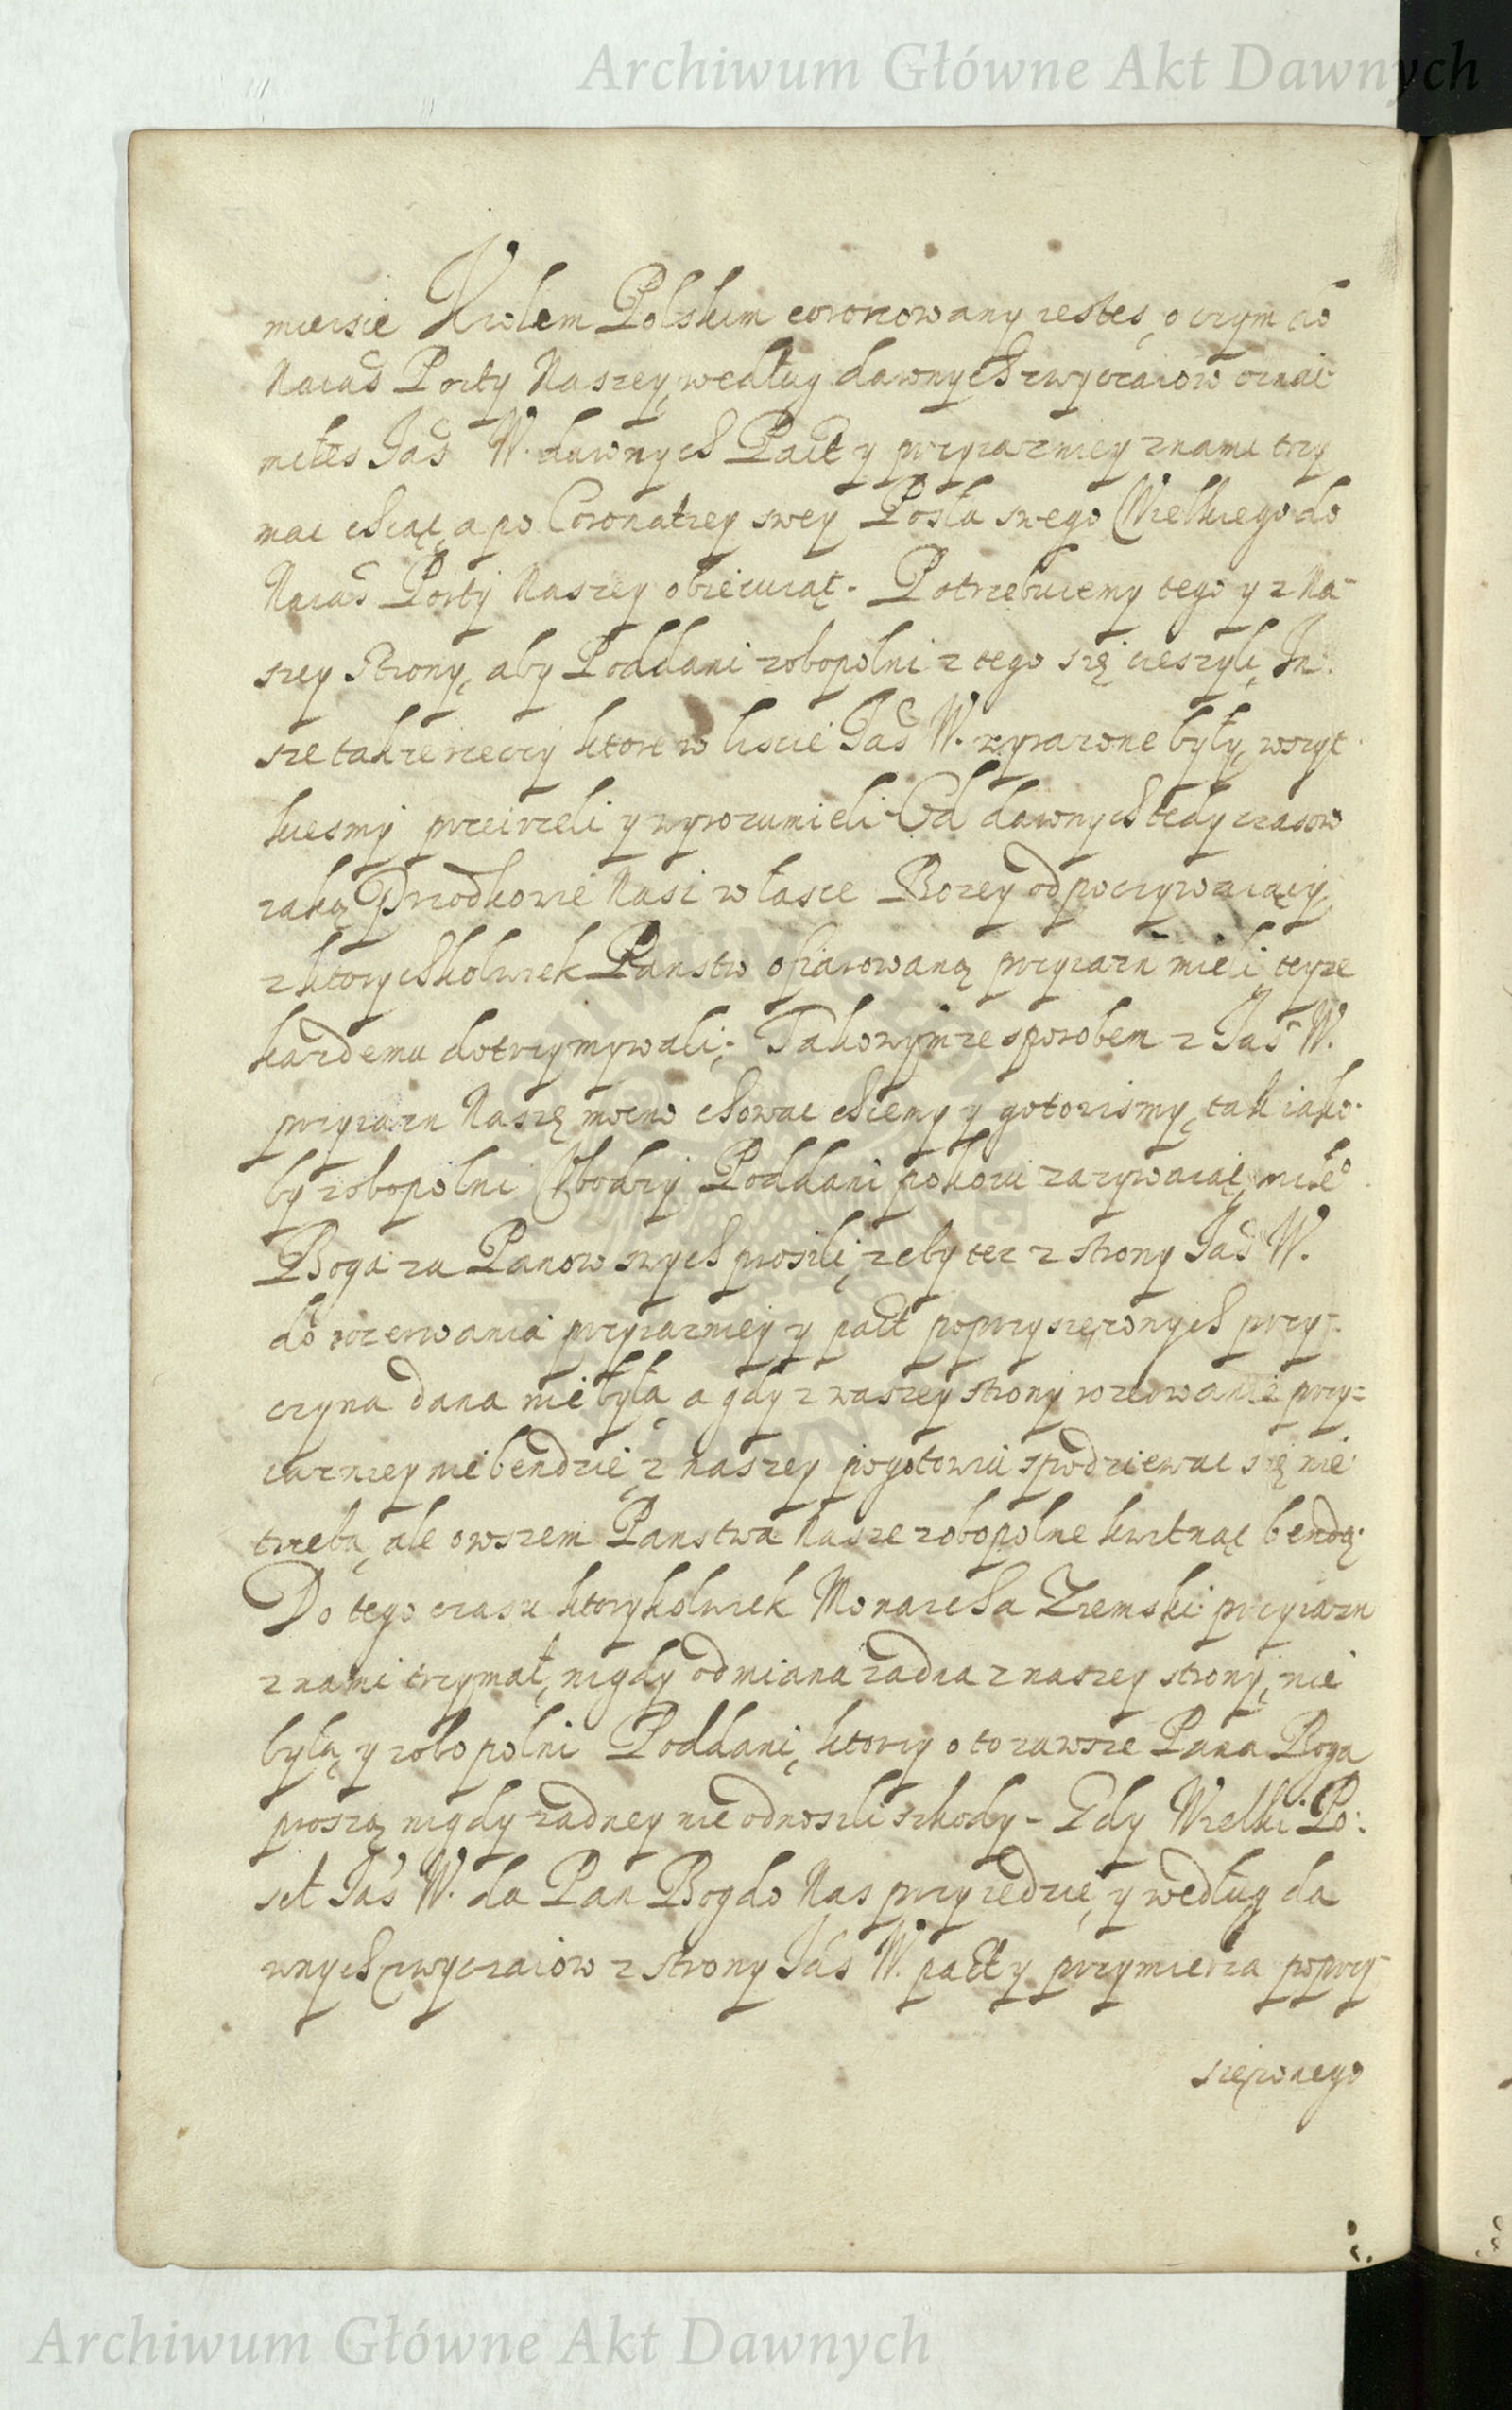 Archiwum Główne Akt Dawnych
mieisie Krolem Polskim coronowany iestes, o czym do
Naias Porty Naszey, według dawnych zwyczaiow oznai
miłes Jas W. dawnych Pact y przyiazniey z nami trzy
mac chcąc, a po Coronatiey swey Posła swego Wielkiego do
Naias Porty Naszey obiecuiąc. Potrzebuiemy tego y z Na-
szey strony, aby Poddani zobopolni z tego się cieszyli, In
sze takze rzeczy ktore w liscie Jas W. wyrazone były, wszyt
kiesmy przeirzeli y wyrozumieli. Od dawnych tedy czasow
iaką Przodkowie Nasi w łasce Bozey odpoczywaiący,
z ktorychkolwiek Panstw ofiarowaną przyiazn mieli, teyze
kazdemu dotrzymywali; Takowymze sposobem z Jas W.
przyiazn Naszę mocno chowac chcemy y gotowismy, tak iako
by zobopolni Obodzy Poddani pokoiu zazywaiąc, miłо
Boga za Panow swych prosili, zeby tez z strony Jas W.
do rozerwania przyiazniey y pact poprzysięzonych przy-
czyna dana nie była, a gdy z waszey strony rozerwanie przy=
iazniey nie bendzie, z naszey pogotowiu spodziewac się nie
trzeba, ale owszem Panstwa Nasze zobopolne kwitnąc bendą.
Do tego czasu ktorykolwiek Monarcha Ziemski przyiazn
z nami trzymał, nigdy odmiana zadna z naszey strony, nie
była, y zobopolni Poddani, ktorzy o to zawsze Pana Boga
proszą nigdy zadney nie odnosili szkody - Gdy Wielki Po:
seł Jas W. da Pan Bog do Nas przyiedzie, y według da
wnych zwyczaiow z strony Jas W. pact y przymierza poprzy-
sięzonego
Archiwum Główne Akt Dawnych